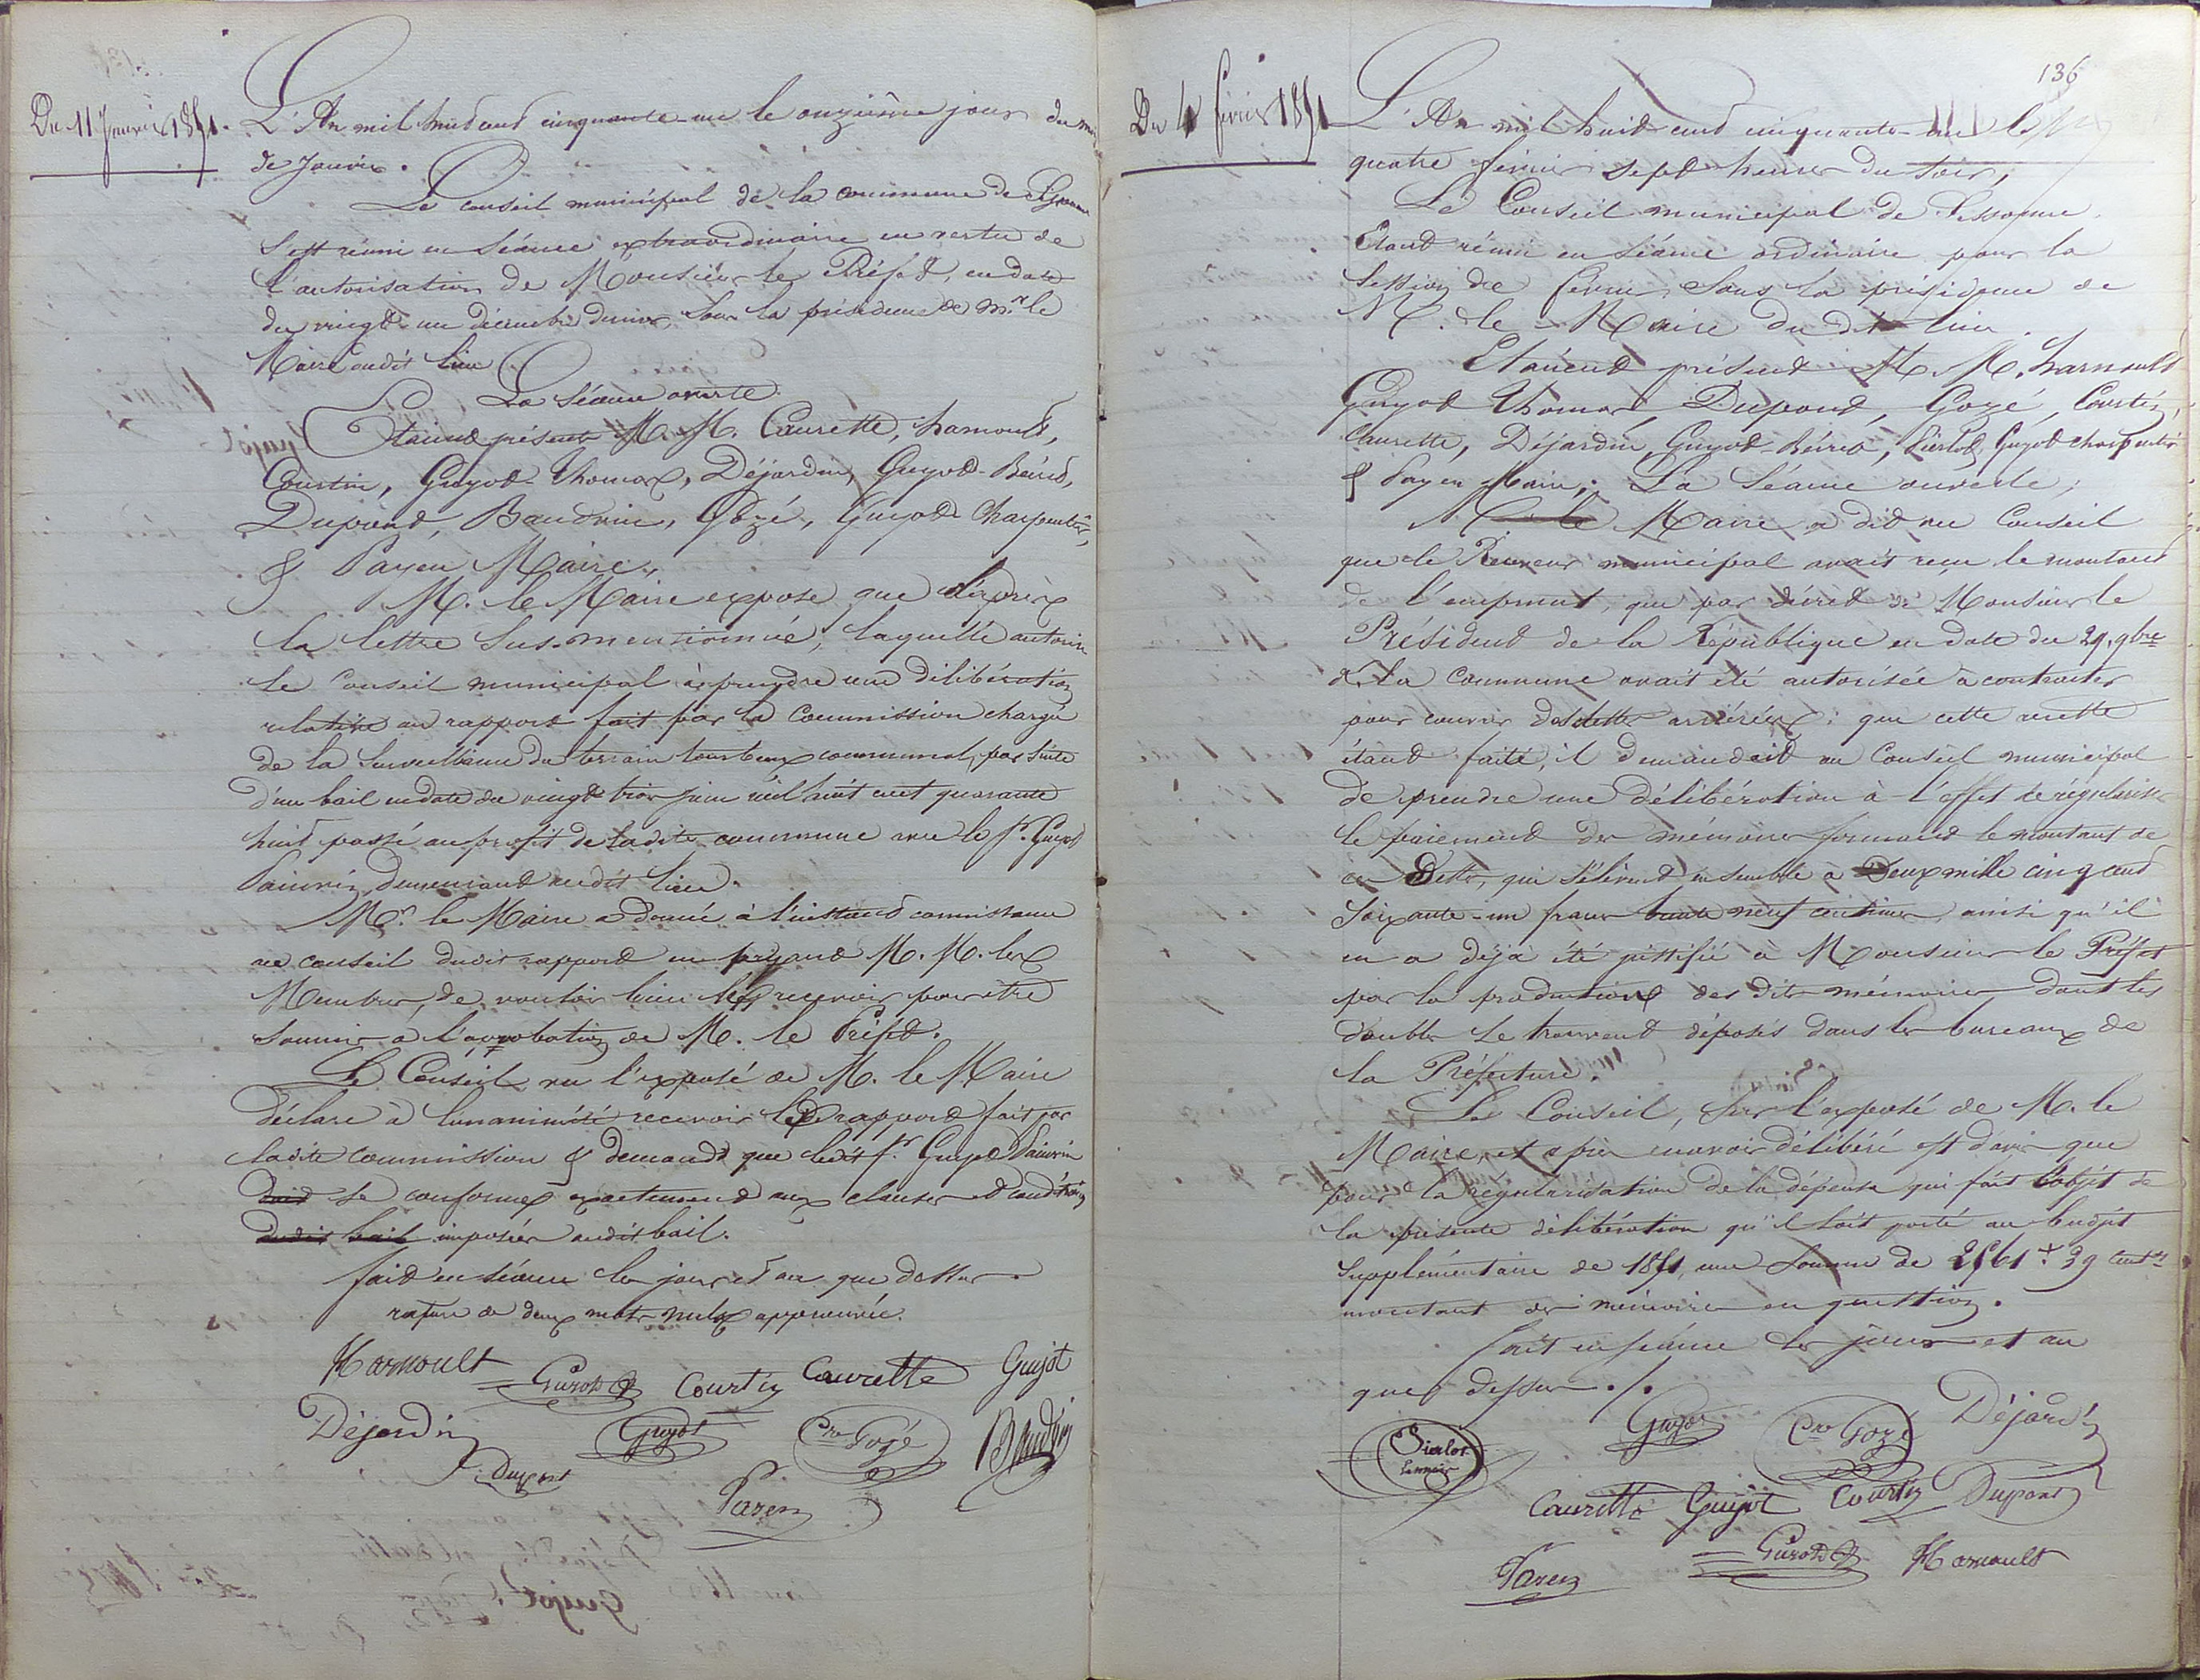 Du 11 Janvier 1851.
L'An mil huit cent cinquante-un le onzième jour du mois
de Janvier.
Le conseil municipal de la commune de
s'est réuni en séance extraordinaire en vertu de
l'autorisation de Monsieur le Préfet, en date
du vingt-un décembre dernier, sous la présidence de Mr. le
Maire dudit lieu
La séance ouverte.
Etaient présents M. M. Caurette, harnoult,
Courtin, Guyot-Thomas, Déjardin, Guyot-
Dupond, Baudoin, Gozé, Guyot Charpentier,
& Payen Maire.
M. le Maire expose que d'après
la lettre sus-mentionnée, laquelle autorise
le Conseil municipal à prendre une délibération
relative au rapport fait par la Commission chargée
de la surveillance du terrain tourbeux communal, par suite
d'un bail en date du vingt trois juin mil huit cent quarante
huit passé au profit de ladite commune avec le sr. Guyot
demeurant audit lieu.
Mr. le Maire a donné à l'instant connaissance
au conseil dudit rapport en priant M. M. les
Membres, de vouloir bien les recevoir pour être
soumis à l'approbation de M. le Préfet.
Le Conseil vu l'exposé de M. le Maire
déclare à l'unanimité recevoir le rapport fait par
ladite commission & demande que ledit sr. Guyot
doit se conformer exactement aux clauses et conditions
dudit bail imposées audit bail.
fait en séance les jour et an que dessus.
rature de deux mots nuls approuvée.
Harnoult Guyot Courtin Caurette Guyot
Déjardin Guyot Gozé Baudoin
Dupont
Payen
136
Du 4 février 1851
L'An mil huit cent cinquante-un le
quatre février sept heures du soir,
Le Conseil municipal de Lessomme
Etant réuni en séance ordinaire pour la
session de février, sous la présidence de
M. le Maire du dit lieu.
Etaient présent M. M. harnoult
Guyot Thomas, Dupond, Gozé, Courtin,
Caurette, Déjardin, Guyot- Sierlot, Guyot Charpentier
& Payen Maire; La Séance ouverte;
M. le Maire a dit au Conseil
que le Receveur municipal avait reçu le montant
de l'emprunt, que par décret de Monsieur le
Président de la République en date du 29. 9bre
dr. la Commune avait été autorisée à contracter
pour couvrir des dettes arriérées; que cette recette
étant faite, il demandait au Conseil municipal
de prendre une délibération à l'effet de régulariser
le paiement des mémoires formant le montant de
ces Dettes, qui s'élèvent ensemble à Deux mille cinq cent
Soixante-un francs trente neuf centimes, ainsi qu'il
en a déjà été justifié à Monsieur le Préfet
par la production des dits mémoires dont les
doubles se trouvent déposés dans les bureaux de
la Préfecture.
Le Conseil, sur l'exposé de M. le
Maire, et après en avoir délibéré est d'avis que
pour la régularisation de la dépense qui fait l'objet de
la présente délibération qu'il soit porté au budjet
supplémentaire de 1851, une somme de 2561 f 39 centes
montant des mémoires en question.
fait en séance les jour et an
que dessus ./.
Sierlot Guyot Gozé Déjardin
Caurette Guyot Courtin Dupont
Payen Guyot Harnoult